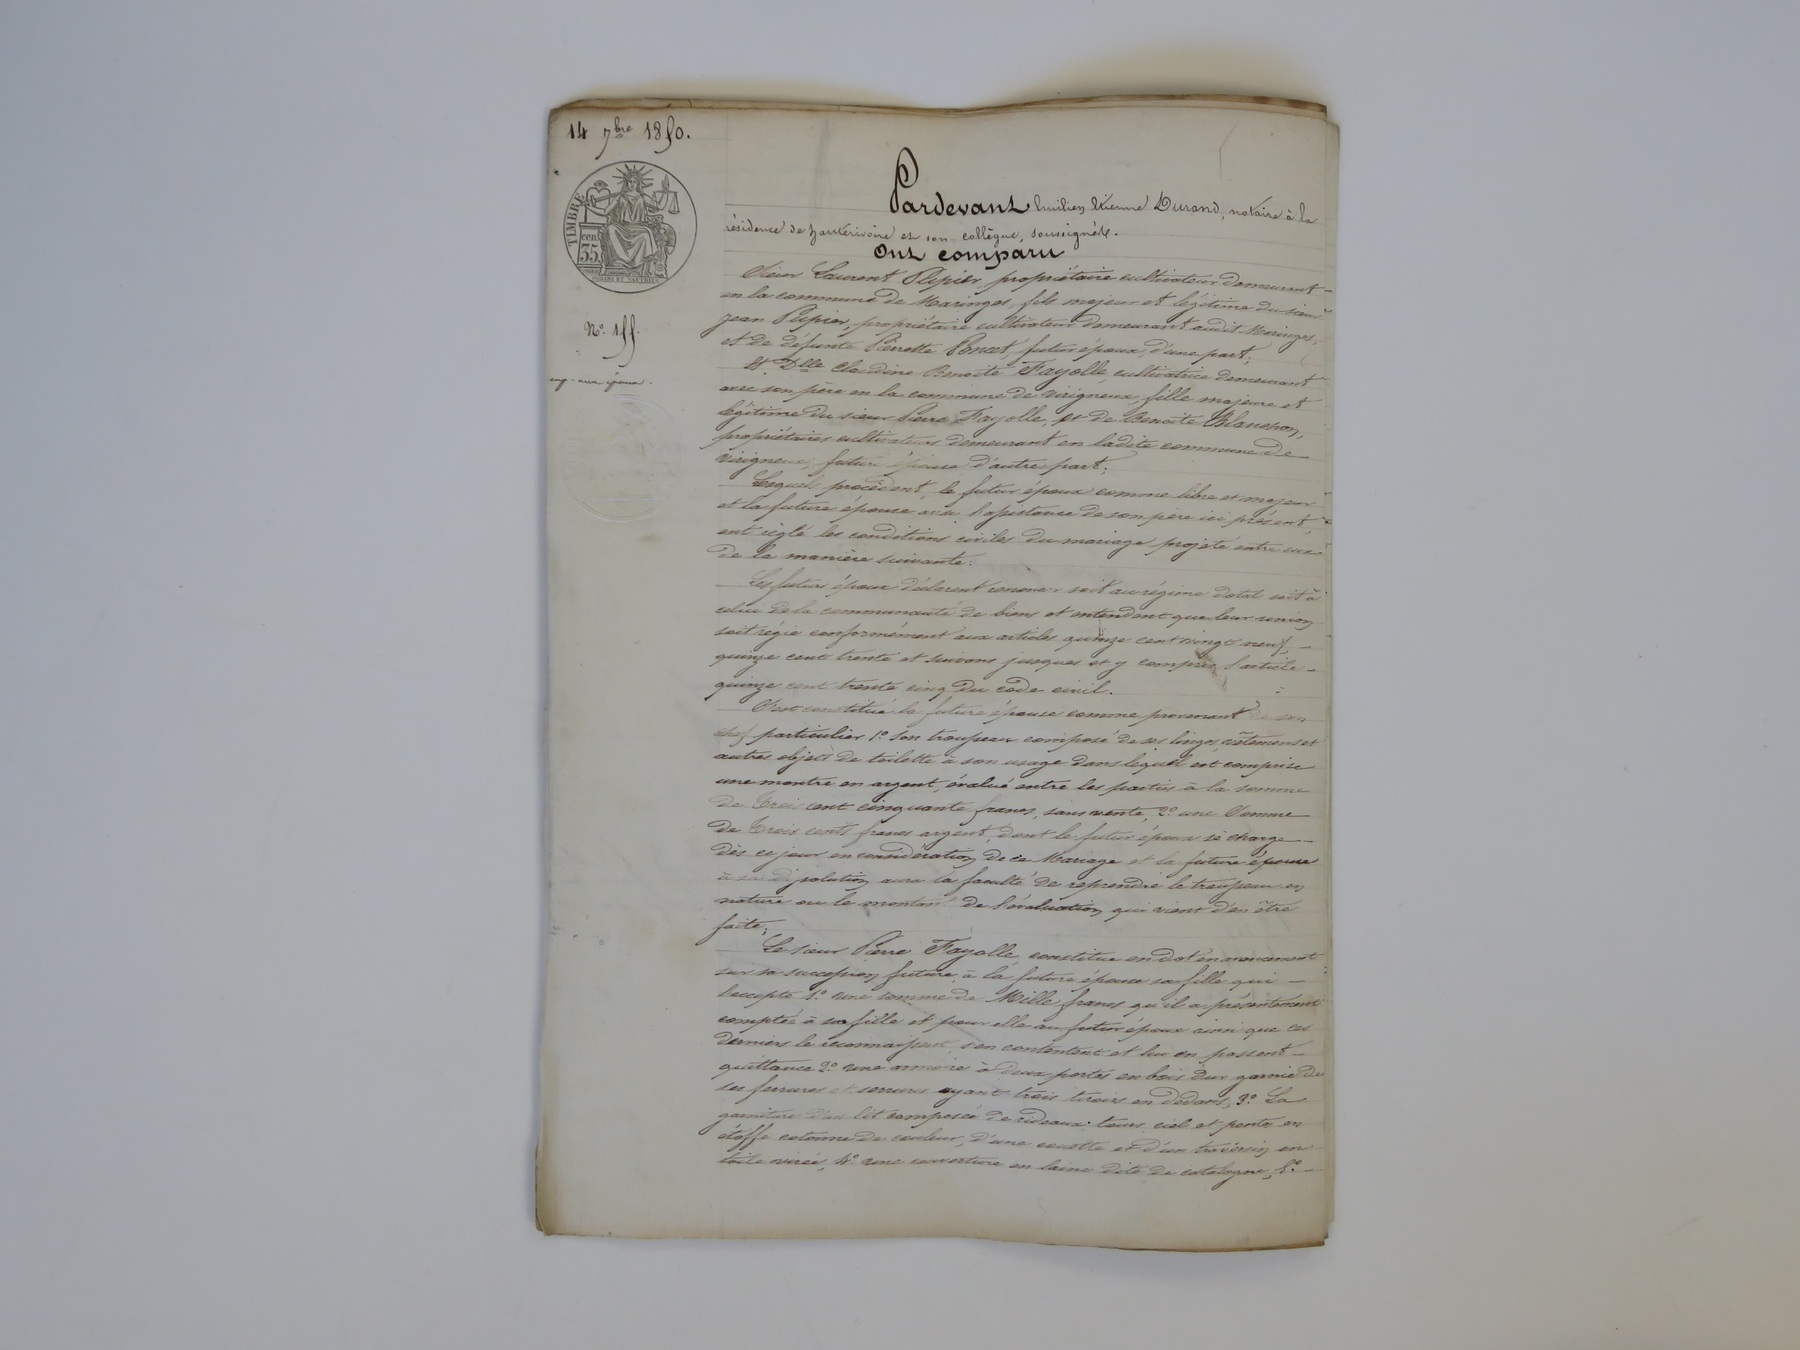 14 7bre 1850.
TIMBRE
cent.
35
No. 155.
Pardevant Emilien Etienne Durand, notaire à la
résidence de hauterivoire et son collègue, soussignés.
Ont comparu
Sieur Laurent Pupier, propriétaire cultivateur demeurant
en la commune de Maringes, fils majeur et légitime du sieur
Jean Pupier, propriétaire cultivateur demeurant audit Maringes,
et de défunte Pierrette Poncet, futur époux, d'une part;
Et Dlle Claudine Benoite Fayolle, cultivatrice demeurant
avec son père en la commune de virigneux, fille majeure et
légitime du sieur Pierre Fayolle, et de Benoite Blanchon,
propriétaires cultivateurs demeurant en ladite commune de
virigneux, future épouse, d'autre part;
Lesquels procédent, le futur époux comme libre et majeur
et la future épouse avec l'assistance de son père ici présent,
ont réglé les conditions civiles du mariage projeté entre eux
de la manière suivante:
Les futurs époux déclarent renoncer soit au régime dotal soit à
celui de la communauté de biens et entendent que leur union
soit régie conformément aux articles quinze cent vingt neuf,
quinze cent trente et suivans jusques et y compris l'article
quinze cent trente cinq du code civil.
S'est constitué la future épouse comme provenant de son
chef particulier 1o son trousseau composé de ses linges, vêtemens et
autres objets de toilette à son usage dans lequel est comprise
une montre en argent, évalué entre les parties à la somme
de Trois cent cinquante francs, sans vente, 2o une Somme
de Trois cents francs argent, dont le futur époux se charge
dès ce jour en considération de ce Mariage et la future épouse
à sa dissolution aura la faculté de reprendre le trousseau en
nature ou le montant de l'évaluation qui vient d'en être
faite;
Le sieur Pierre Fayolle, constitue en dot en avancement
sur sa succession future, à la future épouse sa fille qui
l'accepte 1o une somme de Mille francs qu'il a présentement
comptée à sa fille et pour elle au futur époux ainsi que ces
derniers le reconnaissent, s'en contentent et lui en passent
quittance 2o une armoire à deux portes en bois dur garnie de
ses ferrures et serrures ayant trois tiroirs en dedans, 3o La
garniture d'un lit composée de rideaux, tours, ciel et pentes en
étoffe cotonne de couleur, d'une couette et d'un traversin en
toile, 4o une couverture en laine dite de catalogne, 5o